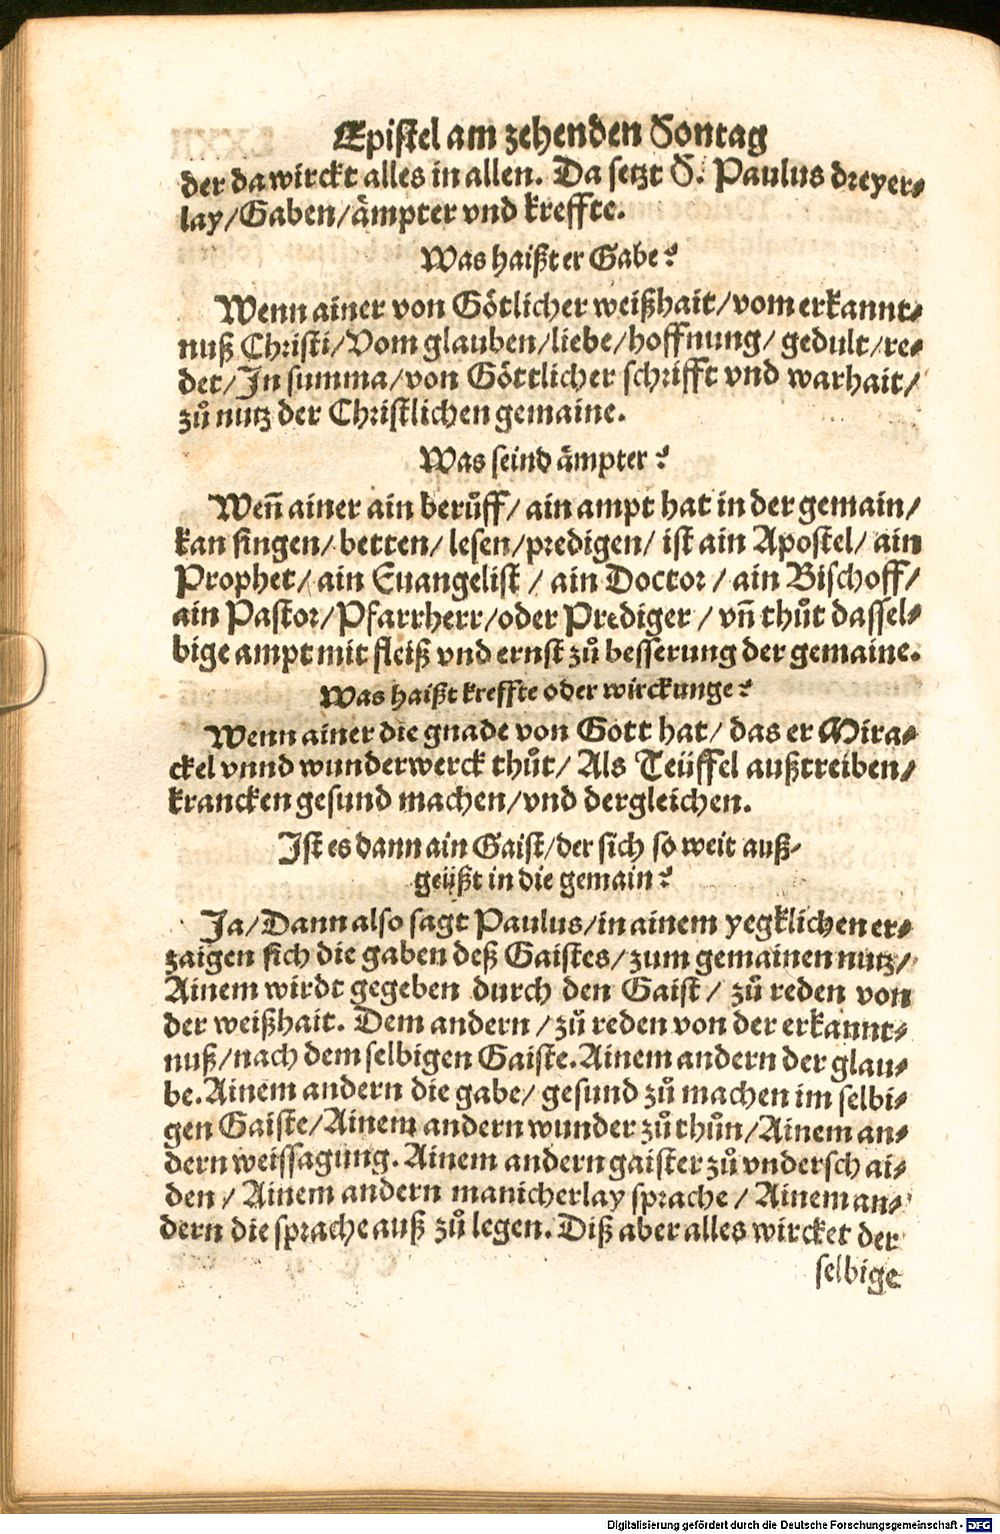 Epistel am zehenden Sontag
der da wirckt alles in allen. Da setzt S. Paulus dreyer⸗
lay/Gaben/ämpter vnd kreffte.
Was haißt er Gabe?
Wenn ainer von Götlicher weißhait/vom erkannt⸗
nuß Christi/Vom glauben/liebe/hoffnung/ gedult/re⸗
det/In summa/von Göttlicher schrifft vnd warhait/
zů nutz der Christlichen gemaine.
Was seind ämpter?
Weñ ainer ain berůff/ ain ampt hat in der gemain/
kan singen/ betten/ lesen/predigen/ ist ain Apostel/ ain
Prophet/ ain Euangelist / ain Doctor / ain Bischoff/
ain Pastor/Pfarrherr/oder Prediger / vñ thůt dassel⸗
bige ampt mit fleiß vnd ernst zů besserung der gemaine.
Was haißt kreffte oder wirckunge?
Wenn ainer die gnade von Gott hat/ das er Mira⸗
ckel vnnd wunderwerck thůt/ Als Teüffel außtreiben/
krancken gesund machen/vnd dergleichen.
Ist es dann ain Gaist/der sich so weit auß⸗
geüßt in die gemain?
Ja/Dann also sagt Paulus/in ainem yegklichen er⸗
zaigen sich die gaben deß Gaistes/zum gemainen nutz/
Ainem wirdt gegeben durch den Gaist/ zů reden von
der weißhait. Dem andern /zů reden von der erkannt⸗
nuß/nach dem selbigen Gaiste.Ainem andern der glau⸗
be.Ainem andern die gabe/ gesund zů machen im selbi⸗
gen Gaiste/Ainem andern wunder zů thůn/Ainem an⸗
dern weissagung. Ainem andern gaister zů vnderschai⸗
den / Ainem andern manicherlay sprache / Ainem an⸗
dern die sprache auß zů legen. Diß aber alles wircket der
selbige
Digitalisierung gefördert durch die Deutsche Forschungsgemeinschaft - DFG